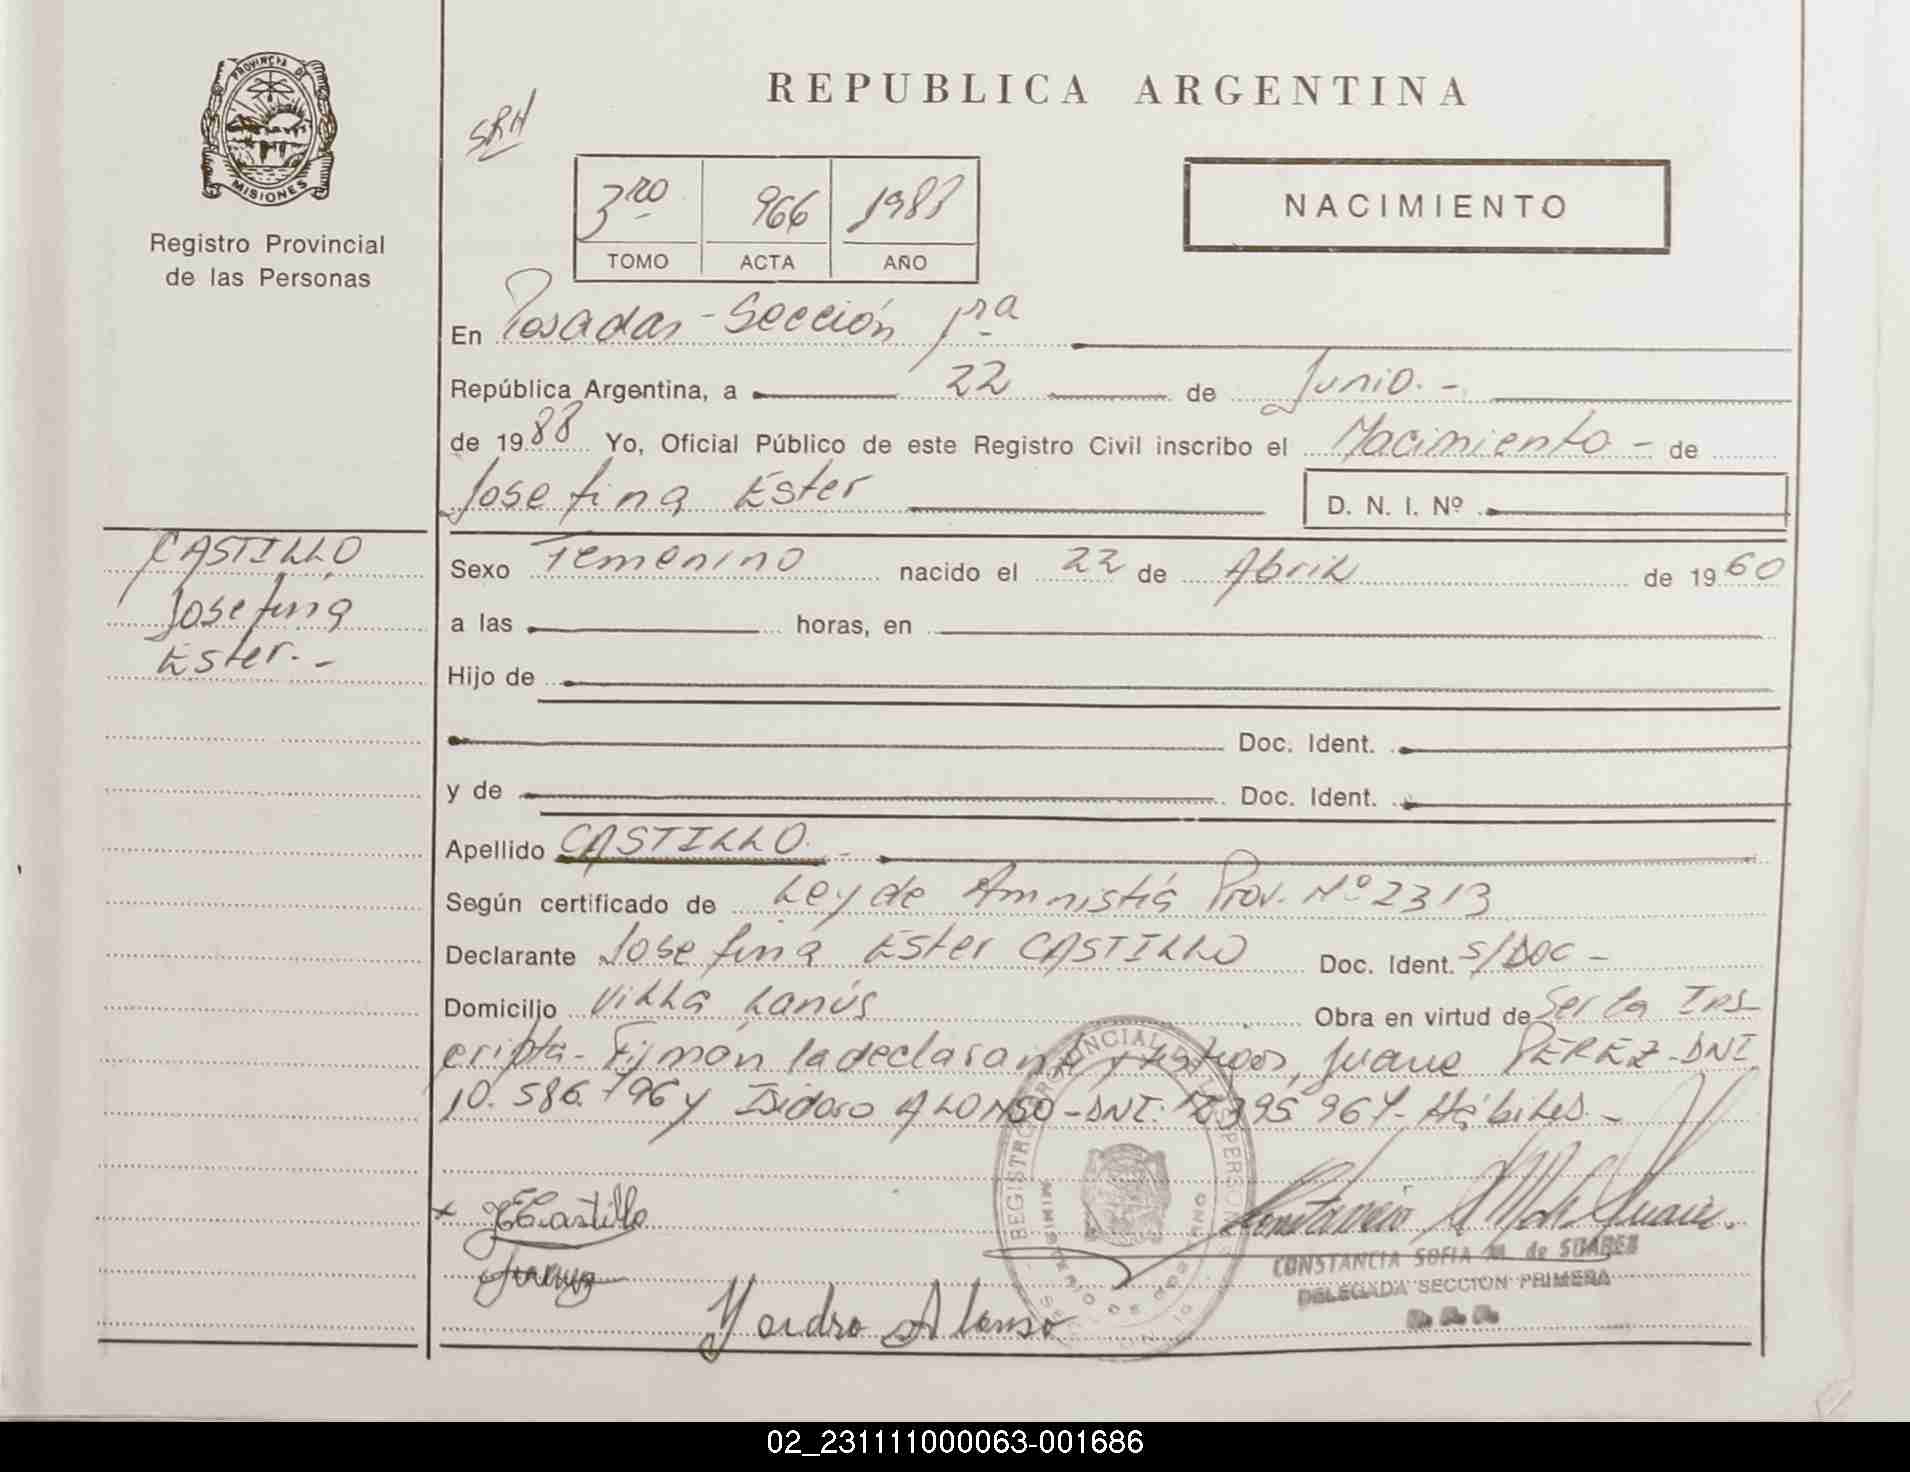 PROVINCIA DE
MISIONES
Registro Provincial
de las Personas
REPUBLICA ARGENTINA
SRH
3ro 966 1988
TOMO ACTA AÑO
NACIMIENTO
En Posadas - Sección 1ra
República Argentina, a 22 de Junio. -
de 1988 Yo, Oficial Público de este Registro Civil inscribo el Nacimiento - de
Josefina Ester D. N. I. Nº
CASTILLO
Josefina
Ester. -
Sexo Femenino nacido el 22 de Abril de 1960
a las horas, en
Hijo de
Doc. Ident.
y de Doc. Ident.
Apellido CASTILLO. -
Según certificado de Ley de Amnistía Prov. Nº 2313
Declarante Josefina Ester CASTILLO Doc. Ident. S/DOC -
Domicilio Villa Lanús Obra en virtud de Ser la Ins-
cripta - Firman la declarante y testigos, Juana PEREZ - DNI
10.586.796 y Isidoro ALONSO - DNI: Hábiles. -
x JECastillo
Juana
Ysidro Alonso
CONSTANCIA SOFIA M. de SUAREZ
DELEGADA SECCION PRIMERA
02_231111000063-001686